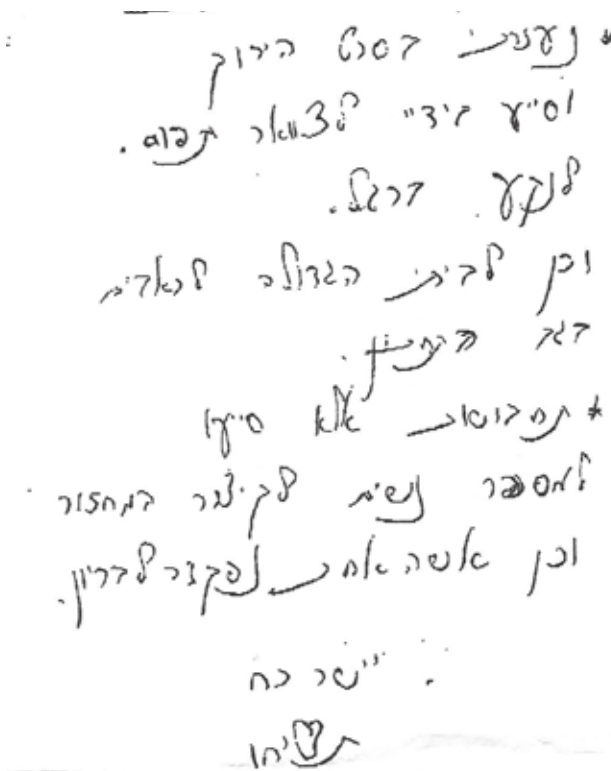 * נעזרתי בסרט הירוק
וסייע בידיי לצוואר תפוס.
לנקע ברגל.
וכן לביתי הגדולה לכאבים
בגב התחתון.
* תחבושות אלא סייעו
למספר נשים לקיצור במחזור
וכן אשה אחת נפקדה לבריון.
יישר כח